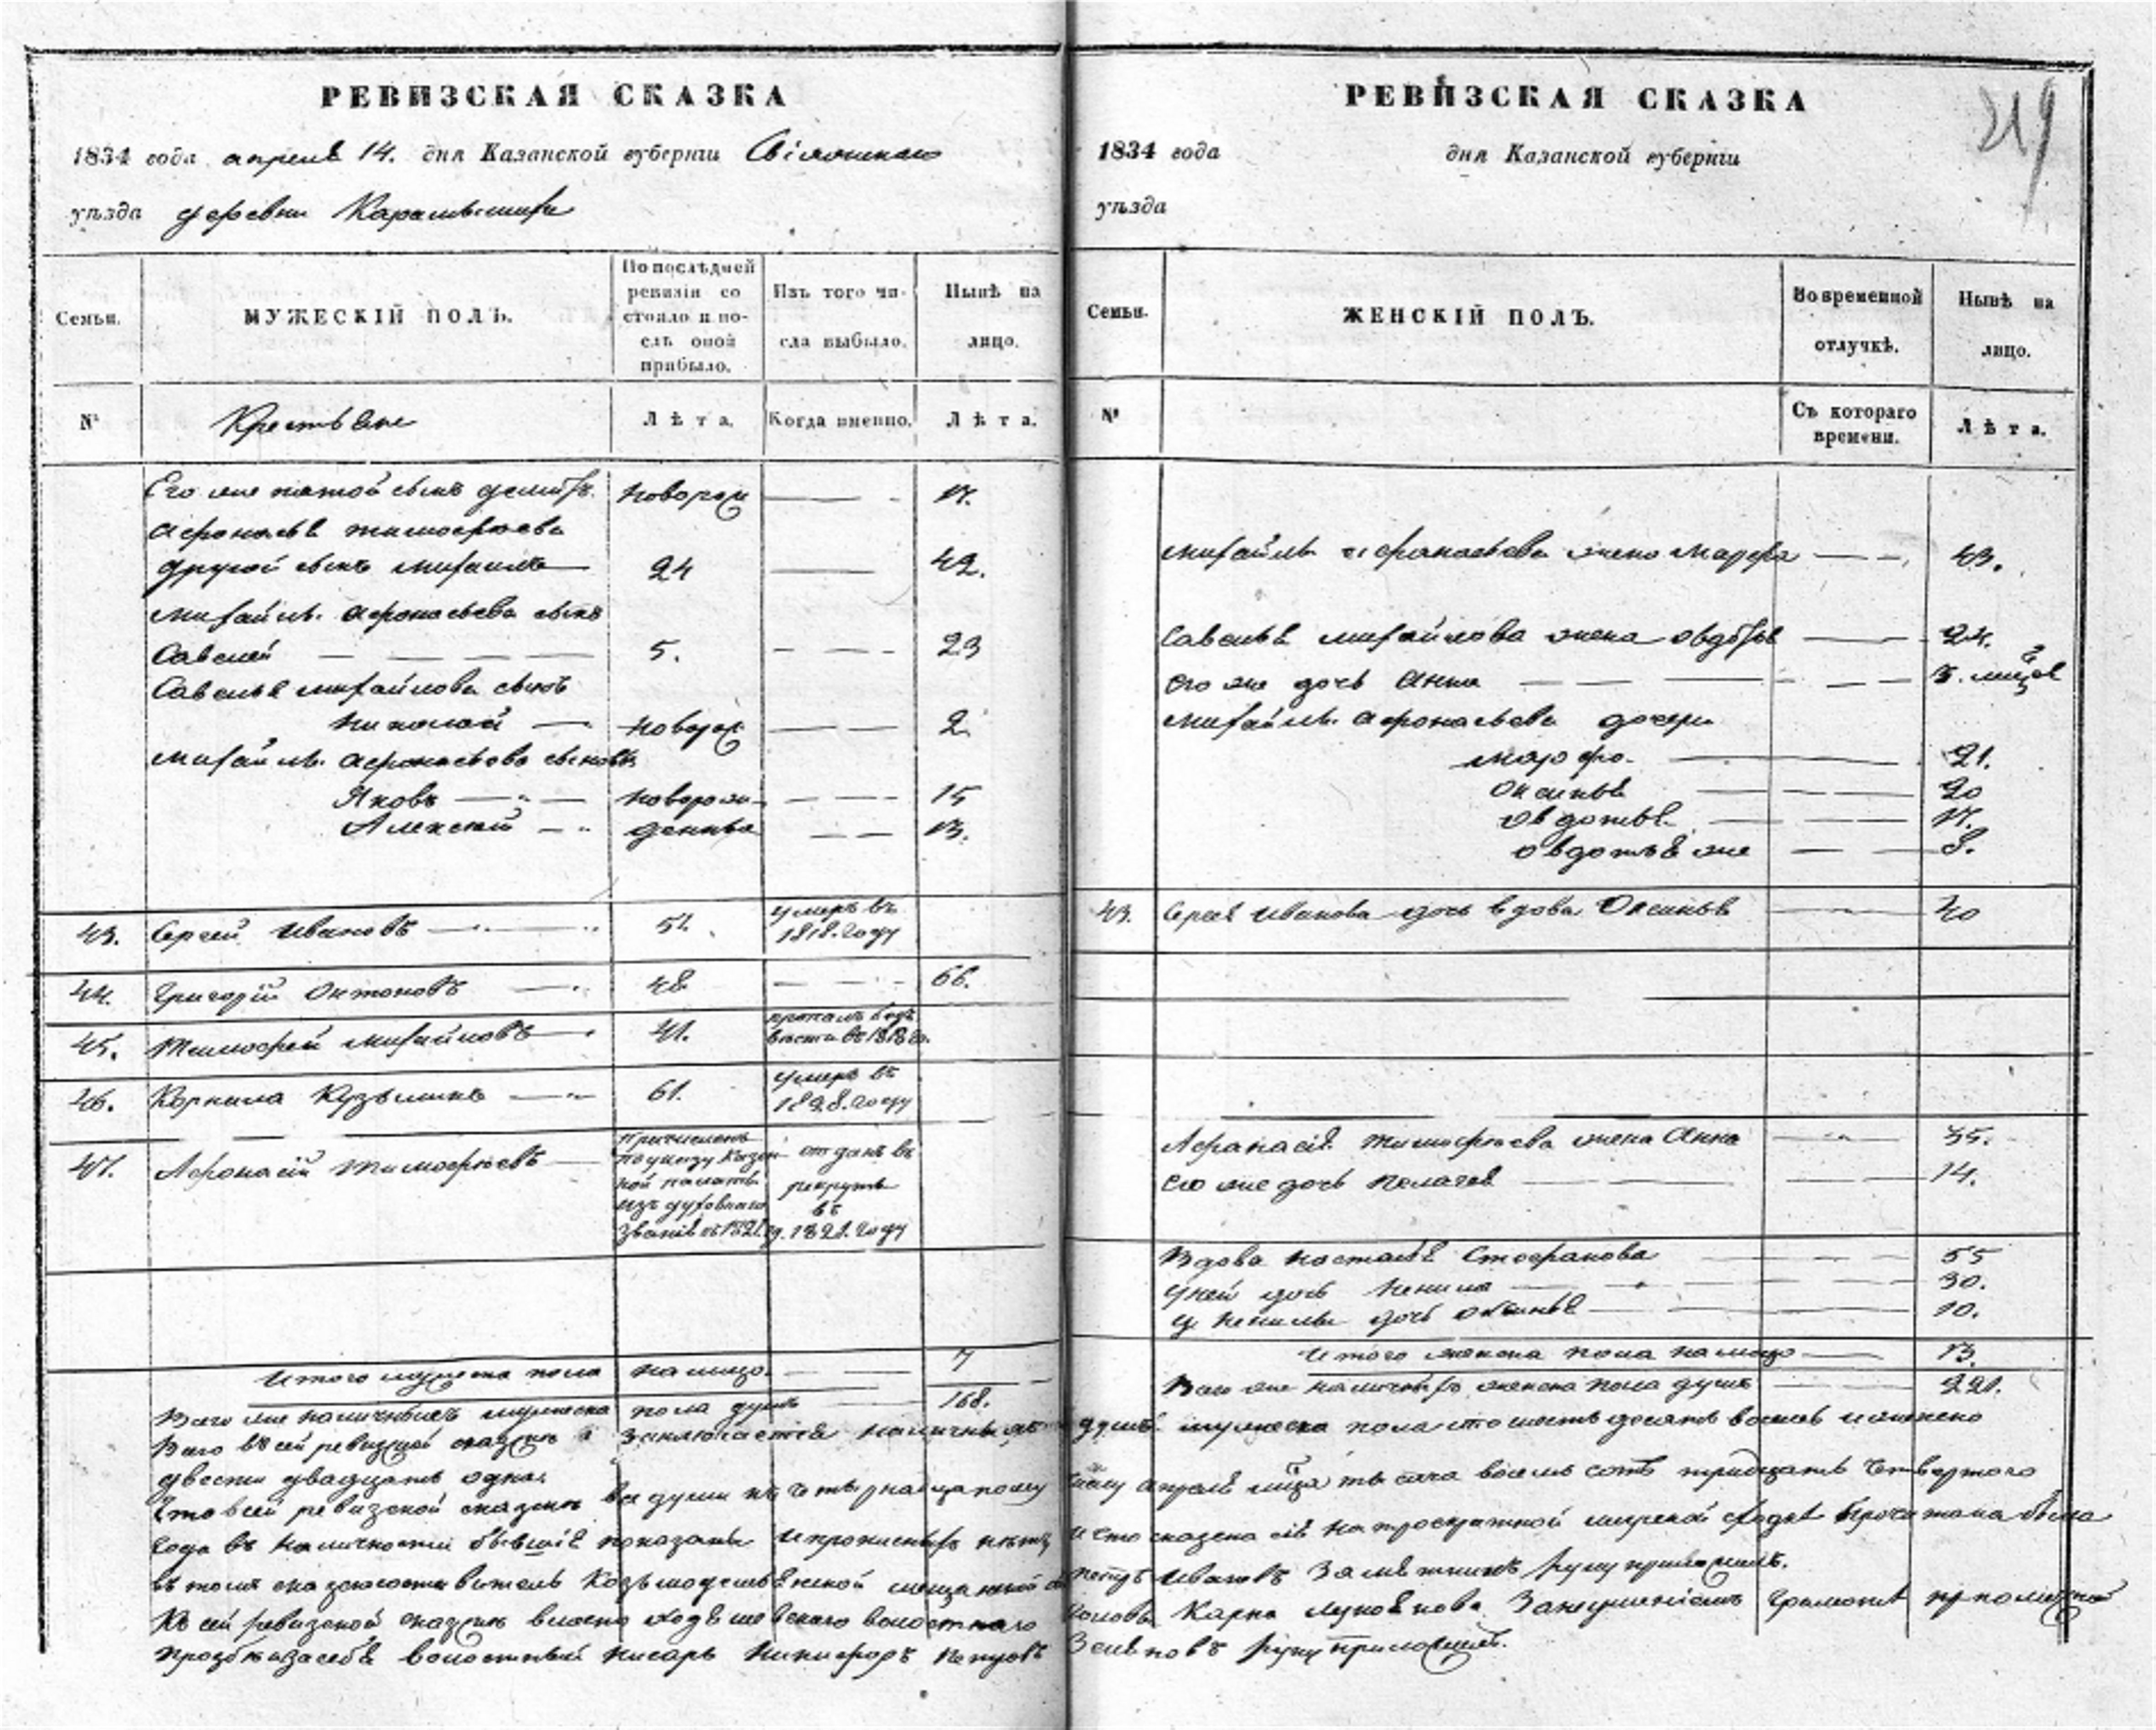 РЕВИЗСКАЯ СКАЗКА
1834 года апреля 14. дня Казанской губерніи Свіяжскаго
уѣзда деревни Карамышихи
Семьи.
МУЖЕСКІЙ ПОЛЪ.
По послѣдней
ревизіи со
стояло и по-
слѣ оной
прибыло.
Изъ того чи-
сла выбыло.
Нынѣ на
лицо.
№
Крестьяне
Лѣта.
Когда именно.
Лѣта.
Его же пятой сынъ новорож 17.
Афонасья тимофѣева
другой сынъ михаилъ 24 42.
михайлы афонасьева сынъ
Савелей 5. 23
Савелья михайлова сынъ
николай новорож 2
михайлы афонасьева сыновья
Яковъ новорож- 15
Алексей денные 13.
43. Сергей Ивановъ 51. умеръ въ
1818. году
44. Григорій Онтоновъ 48 66.
45. Тимофей михайловъ 41. пропалъ безъ
вѣсти въ 1818 го.
46. Корнила Кузьминъ 61. умеръ въ
1828. году
47. Афонасій тимофѣевъ
причисленъ
по указу казен-
ной палаты
изъ духовнаго
званія въ 1821. го.
отданъ въ
рекруты
въ
1821. году
Итого мужеска пола на лицо. 7
Всего же наличныхъ мужеска пола душъ 168.
РЕВИЗСКАЯ СКАЗКА
219
1834 года дня Казанской губерніи
уѣзда
Семьи.
ЖЕНСКІЙ ПОЛЪ.
Во временной
отлучкѣ.
Нынѣ на
лицо.
№
Съ котораго
времени.
Лѣта.
михайлы афанасьева жена марфа 43.
Савелья михайлова жена 24.
его же дочь Анна
михайлы афонасьева дочери
марфа 21.
Оксинья 20
Овдотья 17.
Овдотья же 8.
43. Сергея Иванова дочь вдова Оксинья 40
Афанасія тимофѣева жена Анна 35.
его же дочь пелагея 14.
Вдова настасья Стефанова 55
у ней дочь ненила 30.
у ненилы дочь оксинья 10.
Итого женска пола на лицо 13.
Всего же наличныхъ женска пола душъ 221.
Всего въ сей ревизской сказке заключается наличныхъ душъ мужеска пола сто шестьдесятъ восемь и женска
двести двадцать одна.
Что в сей ревизской сказке все души къ четырнадцатому числу апреля мца тысяча восемь сотъ тридцать четвертого
года въ наличности бывшія показаны и прописныхъ нѣтъ и что сказка сія на мирской сходе прочитана была
въ томъ Козьмодемьянской петръ Ивановъ руку приложилъ.
Къ сей ревизской сказке вместо волостнаго головы Карпа Лукоянова грамоте
прозбе за себя волостный писарь Никифоръ петровъ руку приложилъ.